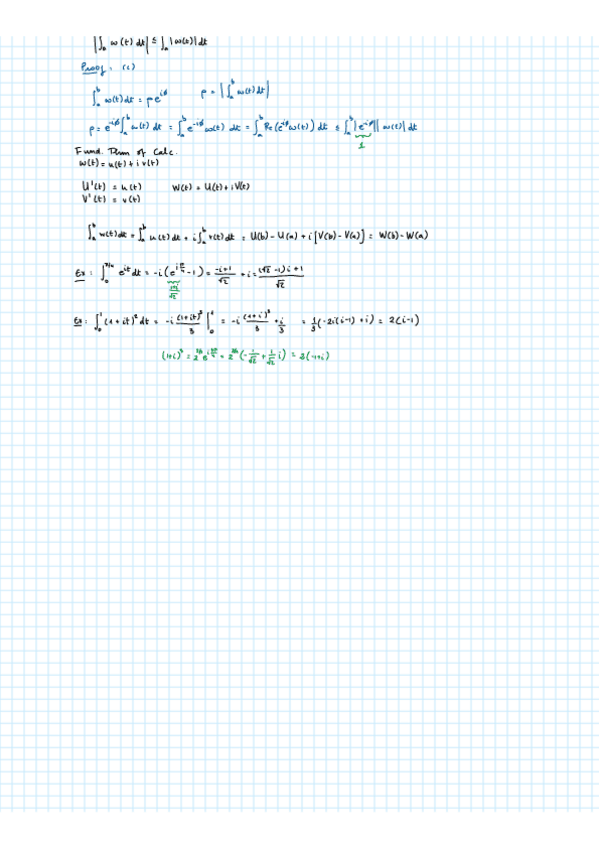 |∫ₐᵇ w(t) dt| ≤ ∫ₐ |w(t)| dt
Proof: (i)
∫ₐᵇ w(t) dt = ρ e^{iφ}    ρ = |∫ₐᵇ w(t) dt|
ρ = e^{-iφ} ∫ₐᵇ w(t) dt = ∫ₐᵇ e^{-iφ} w(t) dt = ∫ₐᵇ Re(e^{-iφ} w(t)) dt ≤ ∫ₐᵇ |e^{-iφ}| |w(t)| dt
1
Fund. Thm of Calc.
w(t) = u(t) + i v(t)
U'(t) = u(t)    W(t) = U(t) + i V(t)
V'(t) = v(t)
∫ₐᵇ w(t) dt = ∫ₐᵇ u(t) dt + i ∫ₐᵇ v(t) dt = U(b) - U(a) + i [V(b) - V(a)] = W(b) - W(a)
Ex: ∫₀^{π/4} e^{it} dt = -i (e^{iπ/4} - 1) = (-i+1)/√2 + i = ((√2 - 1)i + 1)/√2
Ex: ∫₀¹ (1+it)² dt = -i (1+it)³/3 |₀¹ = -i (1+i)³/3 + i/3 = 1/3 (-2i(i-1) + i) = 2(i-1)
(1+i)³ = 2^{3/2} e^{i3π/4} = 2^{3/2} (-1/√2 + 1/√2 i) = 2(-1+i)